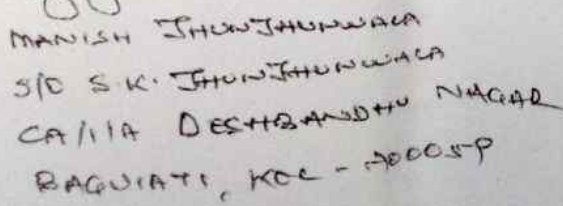 MANISH JHUNJHUNWALA
S/O S.K. JHUNJHUNWALA
CA/1/1A DESHBANDHU NAGAR
BAGUIATI, KOL - 700059